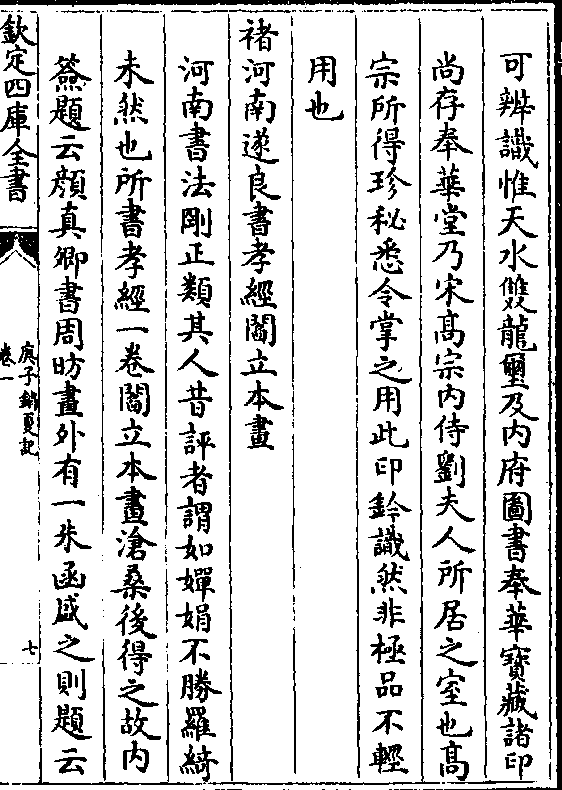 可辨識惟天水雙龍璽及内府圖書奉華寳藏諸印
尚存奉華堂乃宋髙宗内侍劉夫人所居之室也髙
宗所得珍秘悉令掌之用此印鈐識然非極品不輕
用也
褚河南遂良書孝經閻立本畫
河南書法剛正類其人昔評者謂如嬋娟不勝羅綺
未然也所書孝經一卷閻立本畫滄桑後得之故内
籖題云顔真卿書周昉畫外有一朱函盛之則題云
欽定四庫全書
庚子銷夏記
卷一
七